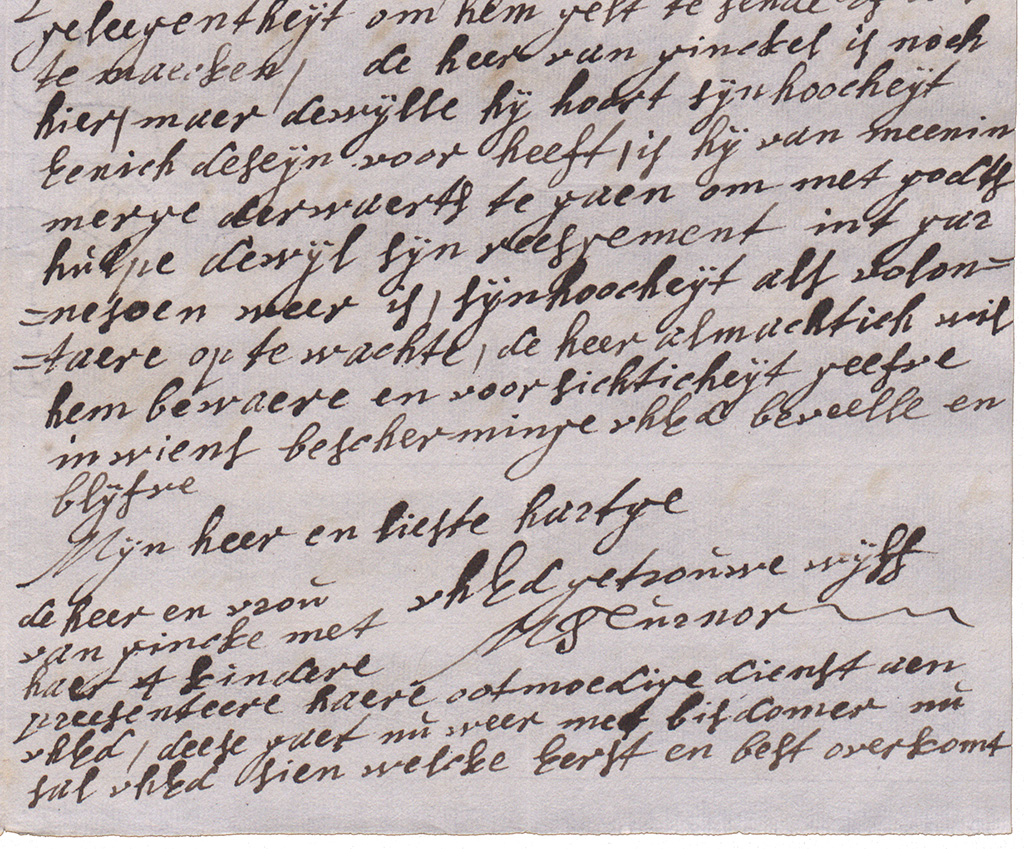 geleegentheÿt om hem gelt te sende
te maecken, de heer van ginckel is noch
hier, maer dewÿlle hÿ hoort sÿn hoocheÿt
Eenich deseÿn voor heeft, is hÿ van meenin
merge derwaerts te gaen om met godts
hulpe dewÿl sÿn reesgement int gar
=nesoen weer is, sÿn hoocheÿt als volon=
=taere op te wachte, de heer almachtich wil
hem bewaere en voorsichticheÿt geefve
in wiens bescherminge uhEd beveelle en
blÿfve
Mÿn heer en liefste hartge
uhEd getrouwe wÿff
M Turnor
de heer en vrou
van gincke met
haer 4 kindere
preesenteere haere ootmoedige dienst aen
uhEd, deese gaet nu weer met bisdomer nu
sal uhEd sien welcke Eerst en best overkomt